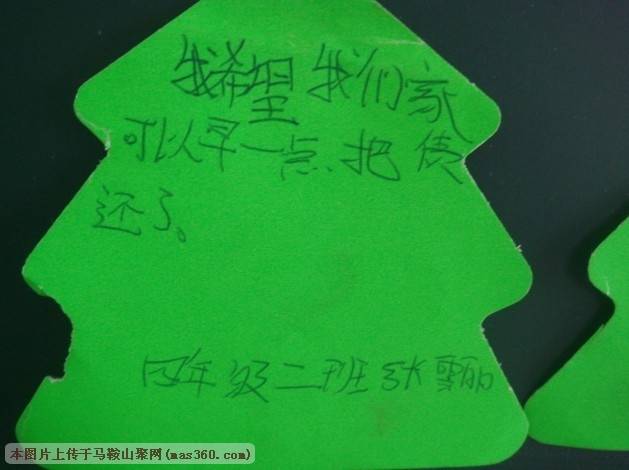 我希望我们家
可以早一点把债
还了。
四年级二班张雪丽
本图片上传于马鞍山聚网(mas360.com)